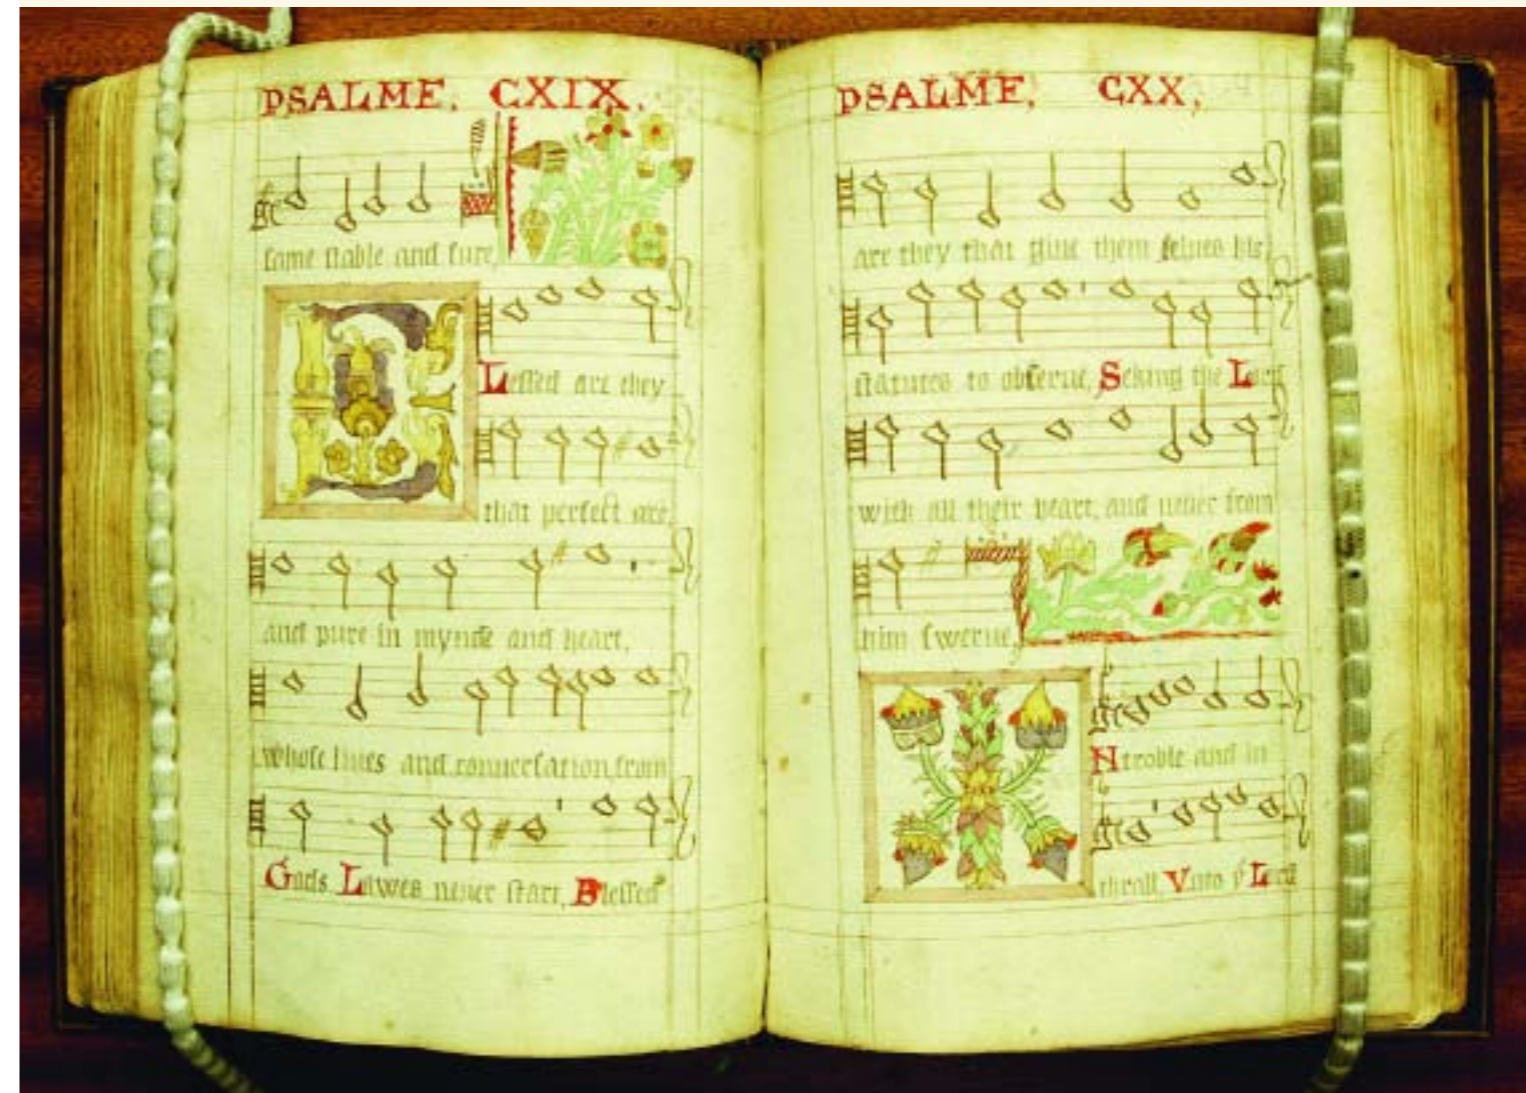 PSALME. CXIX.
same stable and sure,
Lessed are they
that perfect are
and pure in mynde and heart,
whose liues and conuersation from
Gods Lawes neuer start, Blessed
PSALME, CXX,
are they that giue them selues his
statutes to obserue, Seking the Lord
with all their heart, and neuer from
him swerue,
N troble and in
thrall Vnto yͤ Lord